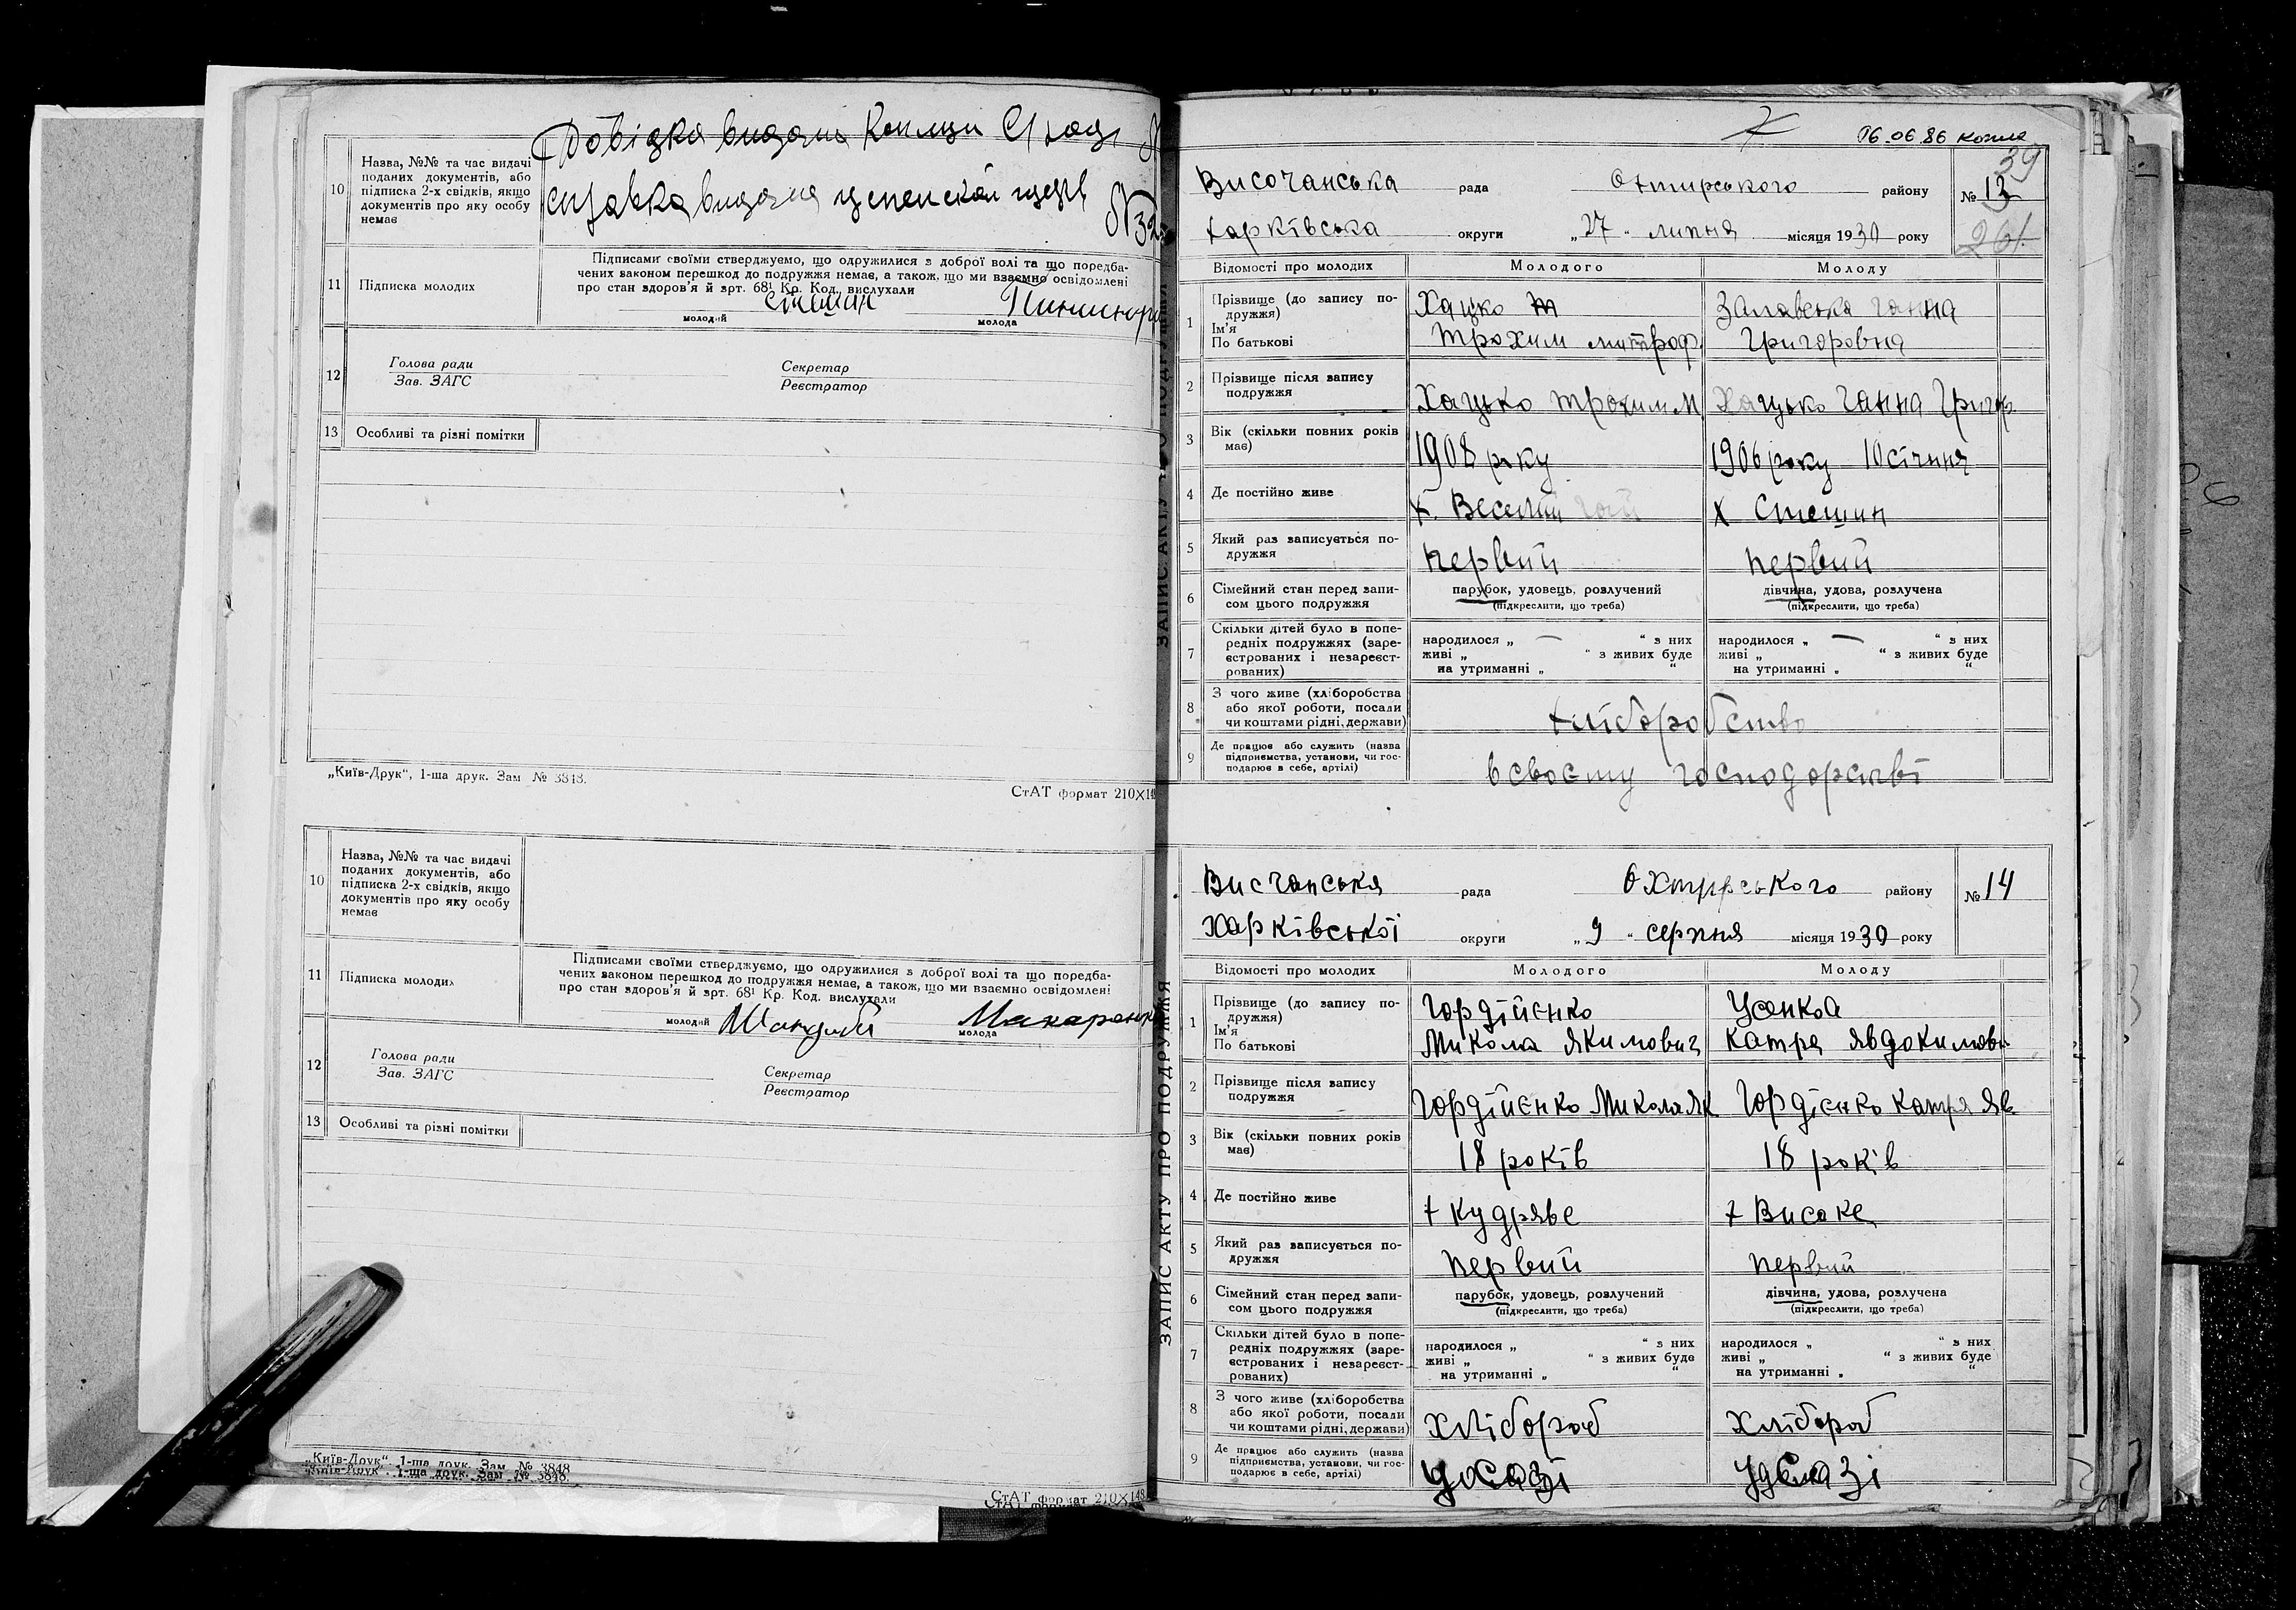 Довідка видана
10 Назва, №№ та час видачі
поданих документів, або
підписка 2-х свідків, якщо
документів про яку особу
немає
видана
№ 32
11 Підписка молодих
Підписами своїми стверджуємо, що одружилися з доброї волі та що поредба-
чених законом перешкод до подружжя немає, а також, що ми взаємно освідомлені
про стан здоров'я й арт. 68¹ Кр. Код. вислухали
молодий
молода
12 Голова ради Секретар
Зав. ЗАГС Реєстратор
13 Особливі та різні помітки
„Київ-Друк“, 1-ша друк. Зам № 3848.
СтАТ формат 210×14
10 Назва, №№ та час видачі
поданих документів, або
підписка 2-х свідків, якщо
документів про яку особу
немає
11 Підписка молодих
Підписами своїми стверджуємо, що одружилися з доброї волі та що поредба-
чених законом перешкод до подружжя немає, а також, що ми взаємно освідомлені
про стан здоров'я й арт. 68¹ Кр. Код. вислухали
молодий молода Макаренк
12 Голова ради Секретар
Зав. ЗАГС Реєстратор
13 Особливі та різні помітки
„Київ-Друк“, 1-ша друк. Зам № 3848
„Київ-Друк“, 1-ша друк. Зам № 3848.
СтАТ формат 210×148
ЗАПИС АКТУ ПРО ПОДРУЖЖЯ
ЗАПИС АКТУ ПРО ПОДРУЖЖЯ
16.06.86 копия
39
Височанська рада Охтирського району № 13
Харківська округи „27“ липня місяця 1930 року
261
Відомості про молодих Молодого Молоду
1 Прізвище (до запису по-
дружжя)
Ім'я
По батькові
Хацко Т
Трохим митроф.
Залавська Ганна
Григоровна
2 Прізвище після запису
подружжя
Хацько Трохим М Хацько Ганна Григор.
3 Вік (скільки повних років
має)
1908 року 1906 року 10 січння
4 Де постійно живе х. Веселий гай х Стешин
5 Який раз записується по-
дружжя
первий первий
6 Сімейний стан перед запи-
сом цього подружжя
парубок, удовець, розлучений дівчина, удова, розлучена
(підкреслити, що треба) (підкреслити, що треба)
7 Скільки дітей було в попе-
редніх подружжях (заре-
єстрованих і незареєст-
рованих)
народилося „ — “ з них народилося „ — “ з них
живі „ “ з живих буде живі „ “ з живих буде
на утриманні „ “ на утриманні „ “
8 З чого живе (хліборобства
або якої роботи, посади
чи коштами рідні, держави)
хліборобство
9 Де працює або служить (назва
підприємства, установи, чи гос-
подарює в себе, артілі)
в своєму господарстві
Висчанська рада Охтирського району № 14
Харківської округи „9“ серпня місяця 1930 року
Відомості про молодих Молодого Молоду
1 Прізвище (до запису по-
дружжя)
Ім'я
По батькові
Гордійєнко
Микола Якимович
Усенкоа
Катря Явдокимовн
2 Прізвище після запису
подружжя
Гордійєнко Микола Як Гордієнко Катря Яв.
3 Вік (скільки повних років
має)
18 років 18 років
4 Де постійно живе х Кудряве х Високе
5 Який раз записується по-
дружжя
первий первий
6 Сімейний стан перед запи-
сом цього подружжя
парубок, удовець, розлучений дівчина, удова, розлучена
(підкреслити, що треба) (підкреслити, що треба)
7 Скільки дітей було в попе-
редніх подружжях (заре-
єстрованих і незареєст-
рованих)
народилося „ “ з них народилося „ “ з них
живі „ “ з живих буде живі „ “ з живих буде
на утриманні „ “ на утриманні „ “
8 З чого живе (хліборобства
або якої роботи, посади
чи коштами рідні, держави)
хлібороб хлібороб
9 Де працює або служить (назва
підприємства, установи, чи гос-
подарює в себе, артілі)